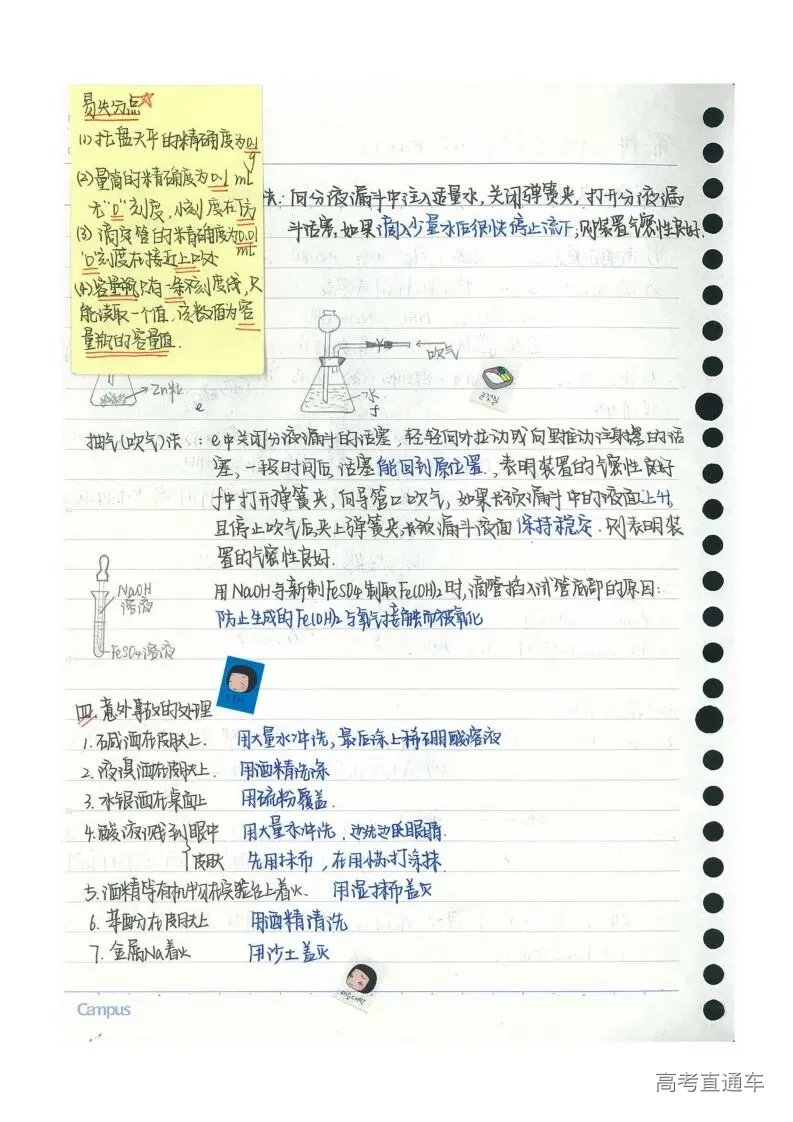 易失分点
(1) 托盘天平的精确度为0.1
g
(2) 量筒的精确度为0.1 mL
无"0"刻度,小刻度在下方
(3) 滴定管的精确度为0.01
mL
"0"刻度在接近上口处
(4) 容量瓶只有一条刻度线,只
能读取一个值,该数值为容
量瓶的容量值.
法: 向分液漏斗中注入适量水,关闭弹簧夹,打开分液漏
斗活塞,如果滴入少量水后很快停止流下,则装置气密性良好.
Zn粒
e
吹气
水
f
抽气(吹气)法: e中关闭分液漏斗的活塞,轻轻向外拉动或向里推动注射器的活
塞,一段时间后,活塞能回到原位置.,表明装置的气密性良好
f中打开弹簧夹,向导管口吹气,如果长颈漏斗中的液面上升,
且停止吹气后,夹上弹簧夹,长颈漏斗液面保持稳定.则表明装
置的气密性良好.
NaOH
溶液
FeSO4溶液
用NaOH与新制FeSO4制取Fe(OH)2时,滴管插入试管底部的原因:
防止生成的Fe(OH)2与氧气接触而被氧化
四.意外事故的处理
1.碱洒在皮肤上. 用大量水冲洗,最后涂上稀硼酸溶液
2.液溴洒在皮肤上. 用酒精洗涤
3.水银洒在桌面上 用硫粉覆盖.
4.酸液溅到眼中 用大量水冲洗,边洗边眨眼睛.
皮肤 先用抹布,在用小苏打涂抹.
5.酒精等有机物在实验台上着火. 用湿抹布盖灭
6.苯酚沾在皮肤上 用酒精清洗
7.金属Na着火 用沙土盖灭
Campus
高考直通车